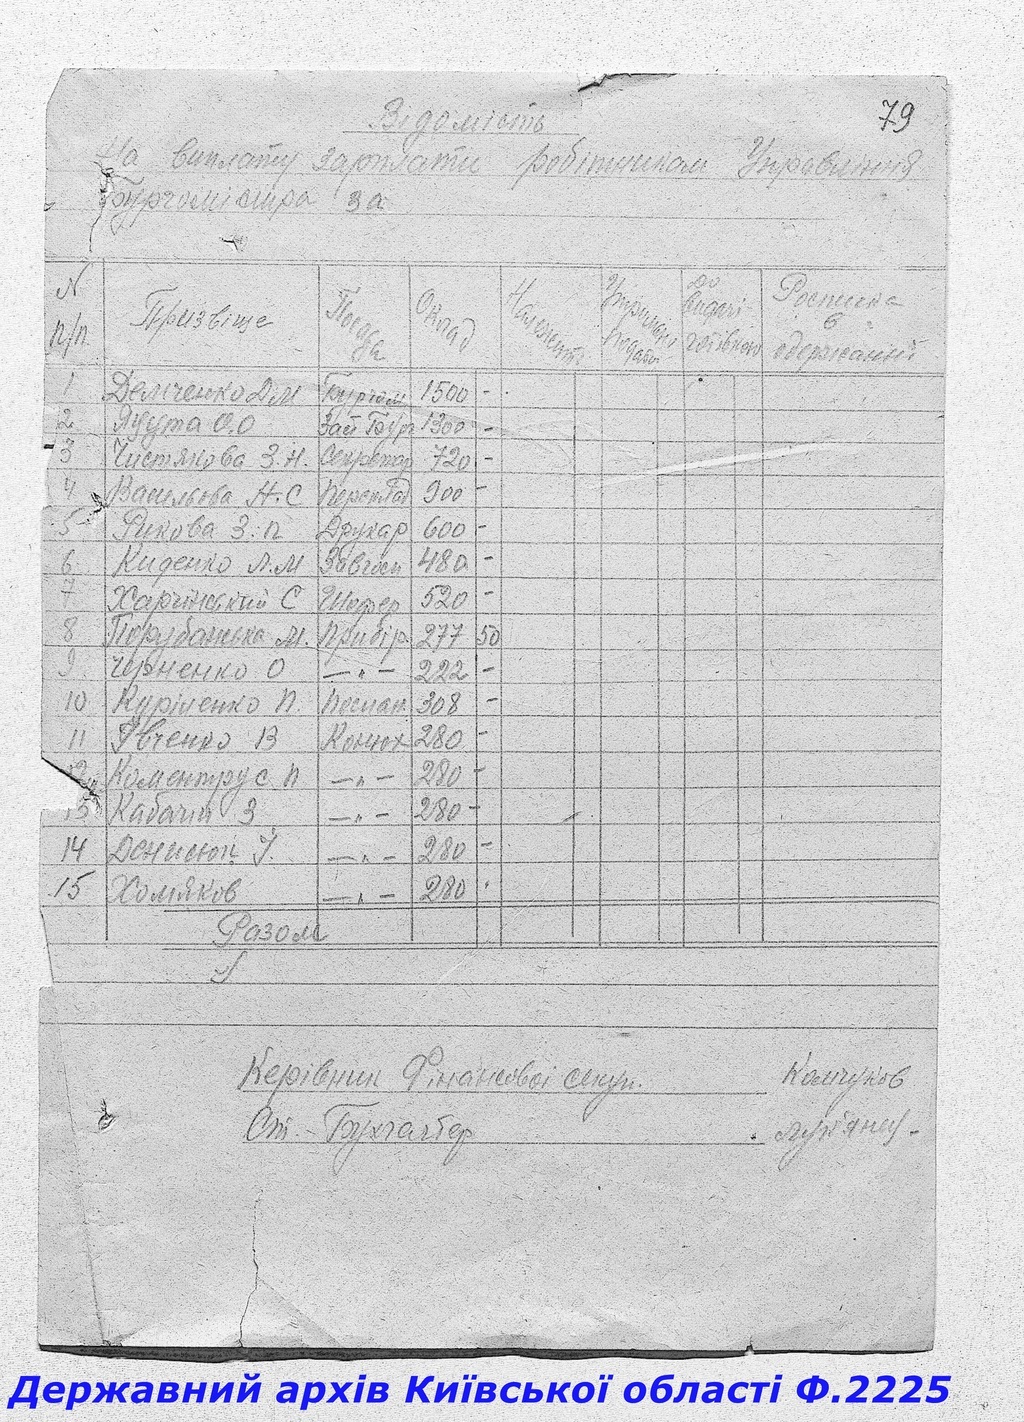 79
Відомість
На виплату зарплати робітникам Управління
Бургомістра за
N п/п Призвіще Посада Оклад Належить Утримані податк До видачі готівкою Росписка в одержанні
1 Демченко Д.М Бургом 1500 -
2 Ядута О.О Зай Бург 1300 -
3 Чистякова З.Н. Секретар 720 -
4 Васильєва Н.С Переклад 900 -
5 Рикова З.П Друкар 600 -
6 Киденко Л.М Завгосп 480 -
7 Харчинський С Шофер 520 -
8 Порубанська М. Прибір. 277 50
9 Чорненко О —„— 222 -
10 Куріленко П. Посильн 308 -
11 Явченко В Конюх 280 -
12 Коментрус П —„— 280 -
13 Кабачий З —„— 280 -
14 Денисюк І. —„— 280 -
15 Хомяков —„— 280
Разом
Керівник Фінансової секції. Комчуков
Ст. Бухгалтер
Державний архів Київської області Ф.2225